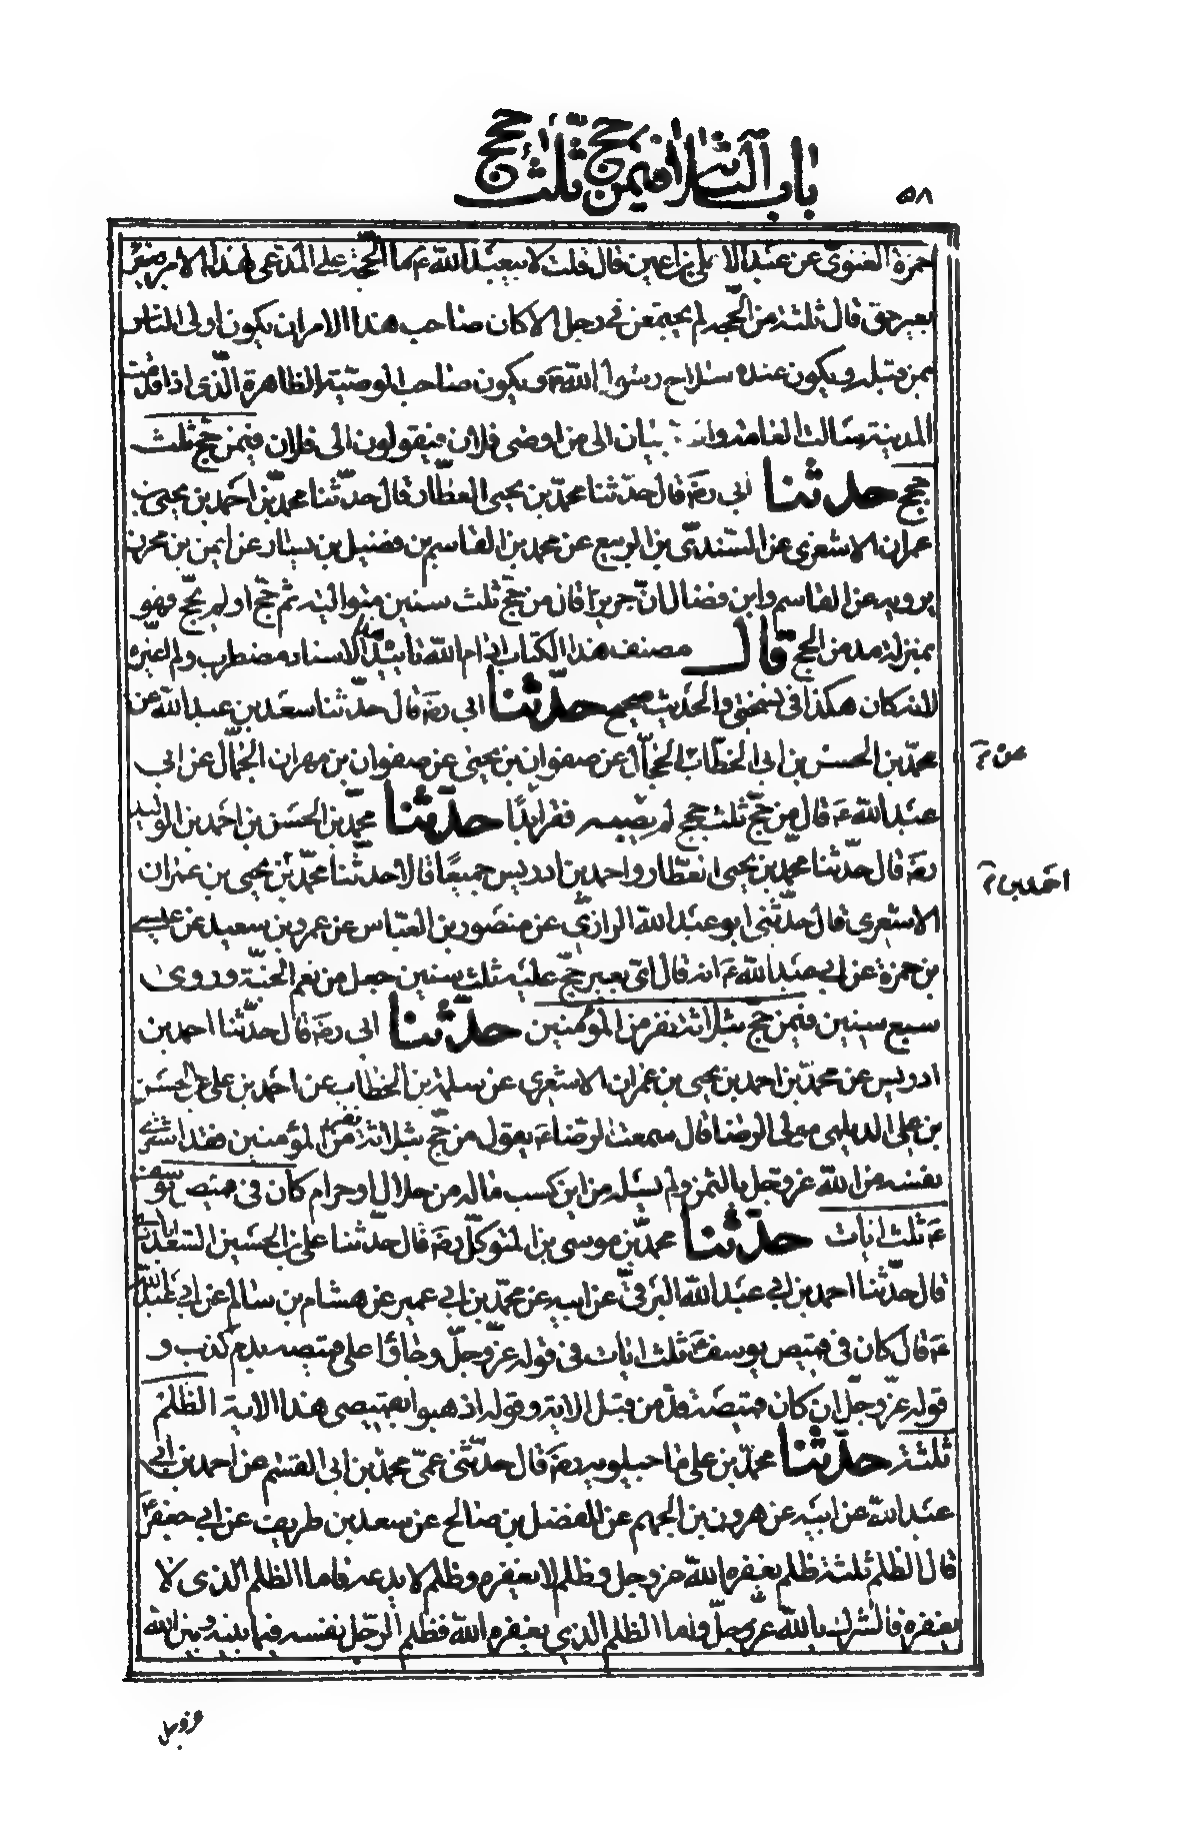 ٥٨ باب الثلاثة فيمن حج ثلث حجج
حمزة الغنوي عن عبد الاعلى بن اعين قال قلت لابيعبد الله ع ما الحجة على المدعى لهذا الامر
بغير حق قال ثلثة من الحجة لم يجتمعن في رجل الا كان صاحب هذا الامر ان يكون اولى الناس
بمن قبله ويكون عنده سلاح رسول الله ص ويكون صاحب الوصية الظاهرة الذي اذا قدمت
المدينة سالت العامة والصبيان الى من اوصى فلان فيقولون الى فلان فيمن حج ثلث
حجج حدثنا ابي رضه قال حدثنا محمد بن يحيى العطار قال حدثنا محمد بن احمد بن يحيى بن
عمران الاشعري عن السندي بن الربيع عن محمد بن القاسم بن فضيل بن يسار عن ايمن بن محرز
يرويه عن القاسم وابن فضال ان حريزا قال من حج ثلث سنين متوالية ثم حج او لم يحج فهو
بمنزلة مدمن الحج قال مصنف هذا الكتاب ادام الله تاييده هذا الاسناد مضطرب ولم اغيره
لانه كان هكذا في نسختي والحديث صحيح حدثنا ابي رضه قال حدثنا سعد بن عبد الله عن
محمد بن الحسين بن ابي الخطاب عن صفوان بن يحيى عن صفوان بن مهران الجمال عن ابي
عن م
عبد الله ع قال من حج ثلث حجج لم يصبه فقر ابدا حدثنا محمد بن الحسن بن احمد بن الوليد
رضه قال حدثنا محمد بن يحيى العطار واحمد بن ادريس جميعا قالا حدثنا محمد بن يحيى بن عمران
احمد بن م
الاشعري قال حدثني ابو عبد الله الرازي عن منصور بن العباس عن عمرو بن سعيد عن عيسى
بن حمزة عن ابي عبد الله ع انه قال اي بعير حج عليه ثلث سنين جعل من نعم الجنة وروى
سبع سنين فيمن حج بثلاثة نفر من المؤمنين حدثنا ابي رضه قال حدثنا احمد بن
ادريس عن محمد بن احمد بن يحيى بن عمران الاشعري عن سلمة بن الخطاب عن احمد بن علي عن الحسن
بن علي الديلمي مولى الرضا قال سمعت الرضا ع يقول من حج بثلاثة نفر من المؤمنين فقد اشترى
نفسه من الله عز وجل بالثمن ولم يسئله من اين كسب ماله من حلال او حرام كان في قميص يوسف
ع ثلث ايات حدثنا محمد بن موسى بن المتوكل رضه قال حدثنا علي بن الحسين السعدابادي
قال حدثنا احمد بن ابي عبد الله البرقي عن ابيه عن محمد بن ابي عمير عن هشام بن سالم عن ابي عبد الله
ع قال كان في قميص يوسف ثلث ايات في قوله عز وجل وجاؤا على قميصه بدم كذب و
قوله عز وجل ان كان قميصه قد من قبل الاية وقوله اذهبوا بقميصي هذا الاية الظلم
ثلثة حدثنا محمد بن علي ماجيلويه رضه قال حدثني عمي محمد بن ابي القسم عن احمد بن ابي
عبد الله عن ابيه عن هرون بن الجهم عن المفضل بن صالح عن سعد بن طريف عن ابي جعفر ع
قال الظلم ثلثة ظلم يغفره الله عز وجل وظلم لا يغفره وظلم لا يدعه فاما الظلم الذي لا
يغفره فالشرك بالله عز وجل واما الظلم الذي يغفره الله فظلم الرجل نفسه فيما بينه وبين الله
عز وجل